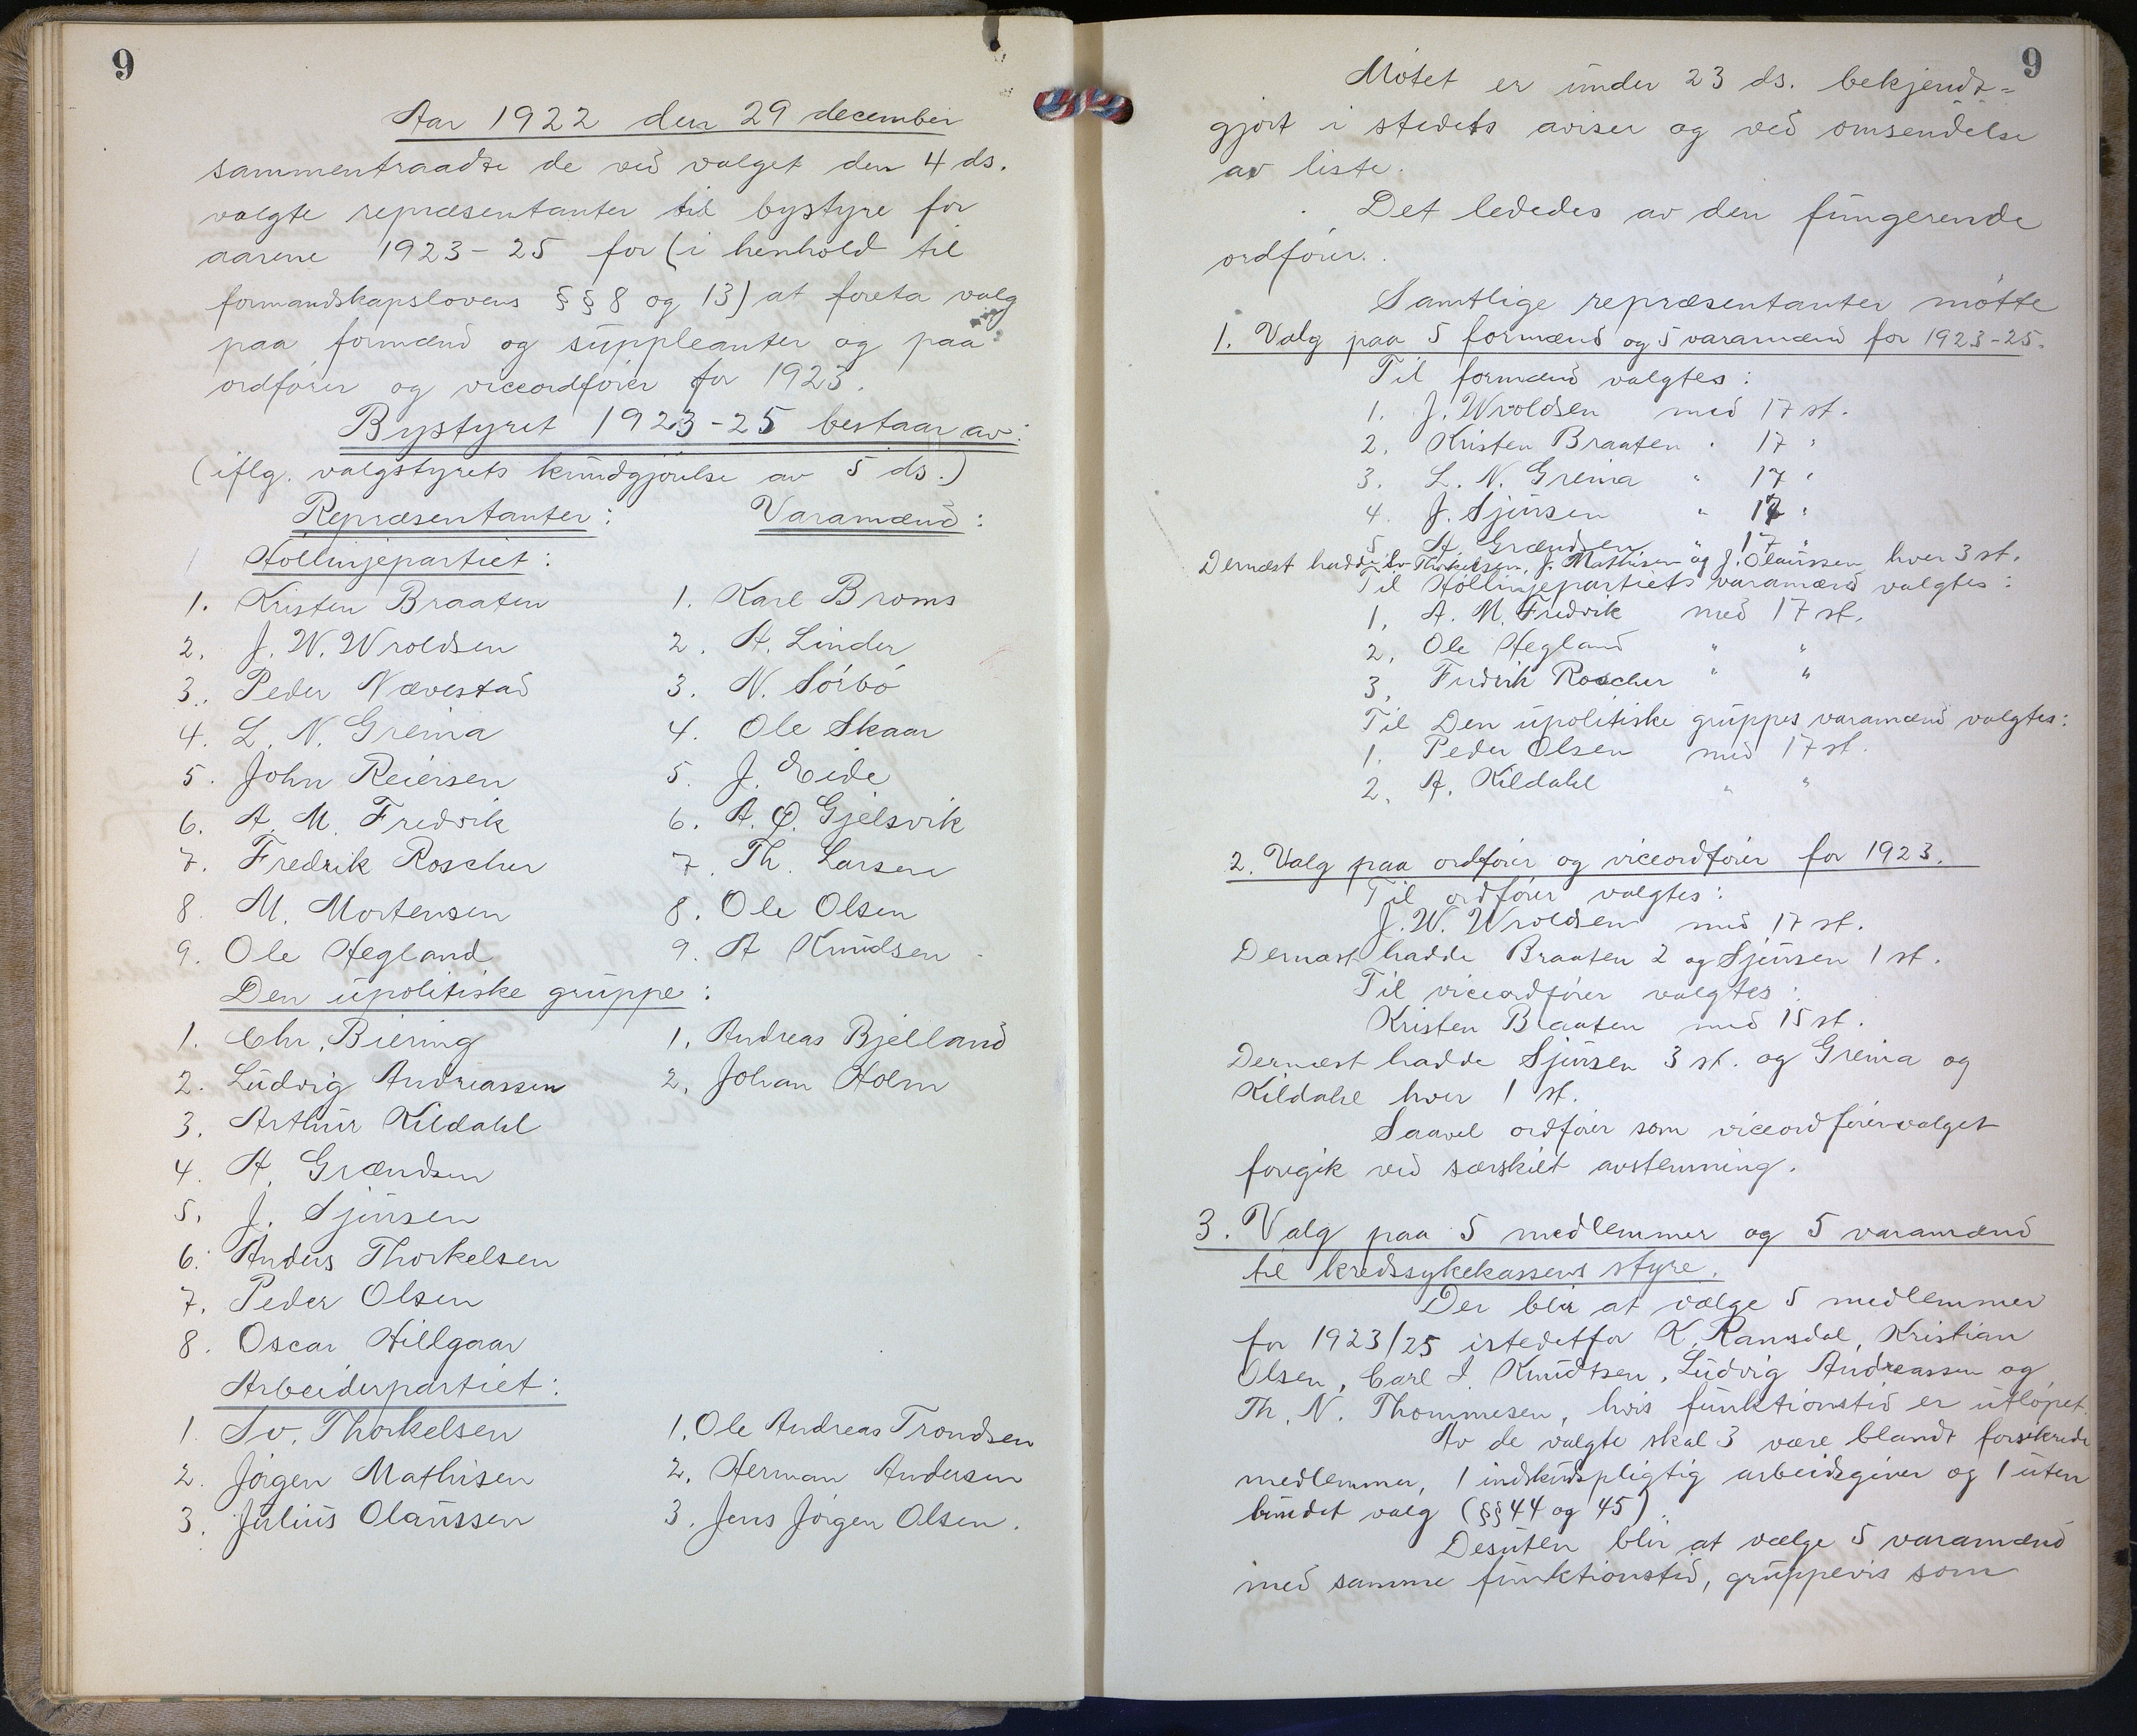 9
Aar 1922 den 29 december
sammentraadte de ved valget den 4 ds.
valgte repræsentanter til bystyre for
aarene 1923-25 for (i henhold til
formandskapslovens §§ 8 og 13) at foreta valg
paa formænd og suppleanter og paa
ordfører og viceordfører for 1923.
Bystyret 1923-25 bestaar av:
(iflg. valgstyrets kundgjørelse av 5 ds.)
Repræsentanter: Varamænd:
Høllinjepartiet:
1. Kristen Braaten 1. Karl Broms
2. J. W. Wroldsen 2. A. Linder
3. Peder Nævestad 3. N. Sørbø
4. L. N. Greina 4. Ole Skaar
5. John Reiersen 5. J. Eide
6. A. M. Fredvik 6. A. Ø. Gjelsvik
7. Fredrik Roscher 7. Th. Larsen
8. M. Mortensen 8. Ole Olsen
9. Ole Hegland 9. A Knudsen
Den upolitiske gruppe:
1. Chr. Biering 1. Andreas Bjelland
2. Ludvig Andreassen 2. Johan Holm
3. Arthur Kildahl
4. A. Grændsen
5. J. Sjursen
6. Anders Thorkelsen
7. Peder Olsen
8. Oscar Hillgaar
Arbeiderpartiet:
1. Sv. Thorkelsen 1. Ole Andreas Trondsen
2. Jørgen Mathisen 2. Herman Andersen
3. Julius Olaussen 3. Jens Jørgen Olsen.
9
Møtet er under 23 ds. bekjendt=
gjort i stedets aviser og ved omsendelse
av liste.
Det lededes av den fungerende
ordfører.
Samtlige repræsentanter møtte
1. Valg paa 5 formænd og 5 varamænd for 1923-25.
Til formænd valgtes:
1. J. Wroldsen med 17 st.
2. Kristen Braaten " 17 "
3. L. N. Greina " 17 "
4. J. Sjursen " 17 "
5. A. Grændsen " 17 "
Dernæst hadde Sv. Thorkelsen, J. Mathisen og J. Olaussen hver 3 st.
Til Høllinjepartiets varamænd valgtes:
1. A. M. Fredvik med 17 st.
2. Ole Hegland " "
3. Fredrik Roscher " "
Til Den upolitiske gruppes varamænd valgtes:
1. Peder Olsen med 17 st.
2. A. Kildahl " "
2. Valg paa ordfører og viceordfører for 1923.
Til ordfører valgtes:
J. W. Wroldsen med 17 st.
Dernæst hadde Braaten 2 og Sjursen 1 st.
Til viceordfører valgtes:
Kristen Braaten med 15 st.
Dernæst hadde Sjursen 3 st. og Greina og
Kildahl hver 1 st.
Saavel ordfører som viceordførervalget
foregik ved særskilt avstemning.
3. Valg paa 5 medlemmer og 5 varamænd
til kredssykekassens styre.
Der blir at vælge 5 medlemmer
for 1923/25 istedetfor K. Ramsdal, Kristian
Olsen, Carl I. Knudtsen, Ludvig Andreassen og
Th. N. Thommesen, hvis funktionstid er utløpet.
Av de valgte skal 3 være blandt forsikrede
medlemmer, 1 indskudspligtig arbeidsgiver og 1 uten
bundet valg (§§ 44 og 45).
Desuten blir at vælge 5 varamænd
med samme funktionstid, gruppevis som